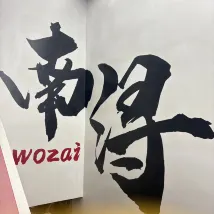 南浔
wozai